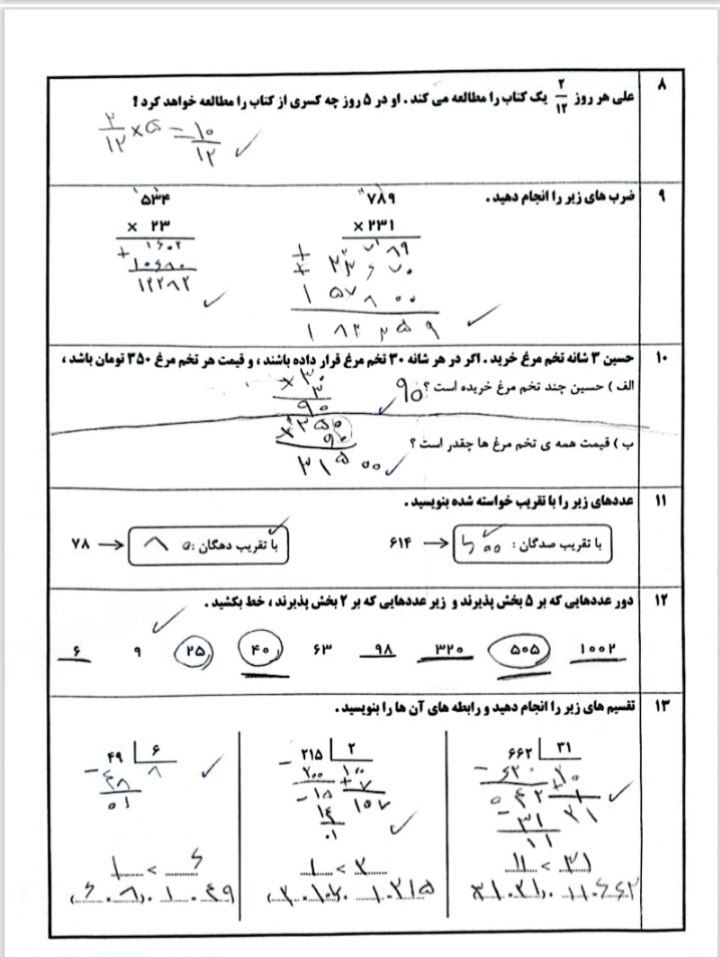 ۸
علی هر روز ۲/۱۲ یک کتاب را مطالعه می کند . او در ۵ روز چه کسری از کتاب را مطالعه خواهد کرد ؟
۲/۱۲ × ۵ = ۱۰/۱۲
۹
ضرب های زیر را انجام دهید .
۷۸۹
× ۲۳۱
۷۸۹
+ ۲۳۶۷۰
+ ۱۵۷۸۰۰
۱۸۲۲۵۹
۵۳۴
× ۲۳
۱۶۰۲
+ ۱۰۶۸۰
۱۲۲۸۲
۱۰
حسین ۳ شانه تخم مرغ خرید . اگر در هر شانه ۳۰ تخم مرغ قرار داده باشند ، و قیمت هر تخم مرغ ۳۵۰ تومان باشد ،
الف ) حسین چند تخم مرغ خریده است ؟ ۹۰
× ۳۰
۳
۹۰
ب ) قیمت همه ی تخم مرغ ها چقدر است ؟
× ۳۵۰
۹۰
۳۱۵۰۰
۱۱
عددهای زیر را با تقریب خواسته شده بنویسید .
۶۱۴ → با تقریب صدگان : ۶۰۰
۷۸ → با تقریب دهگان : ۸۰
۱۲
دور عددهایی که بر ۵ بخش پذیرند و زیر عددهایی که بر ۲ بخش پذیرند ، خط بکشید .
۶ ۹ ۲۵ ۴۰ ۶۳ ۹۸ ۳۲۰ ۵۰۵ ۱۰۰۲
۱۳
تقسیم های زیر را انجام دهید و رابطه های آن ها را بنویسید .
۶۶۲ ۳۱
− ۶۲۰ ۲۰
۰۴۲ + ۱
− ۳۱ ۲۱
۱۱
۱۱ < ۳۱
۲۱۵ ۲
− ۲۰۰ ۱۰۰
− ۱۵ + ۷
۱۴ ۱۰۷
۰۱
۱ < ۲
۴۹ ۶
− ۴۸ ۸
۰۱
۱ < ۶